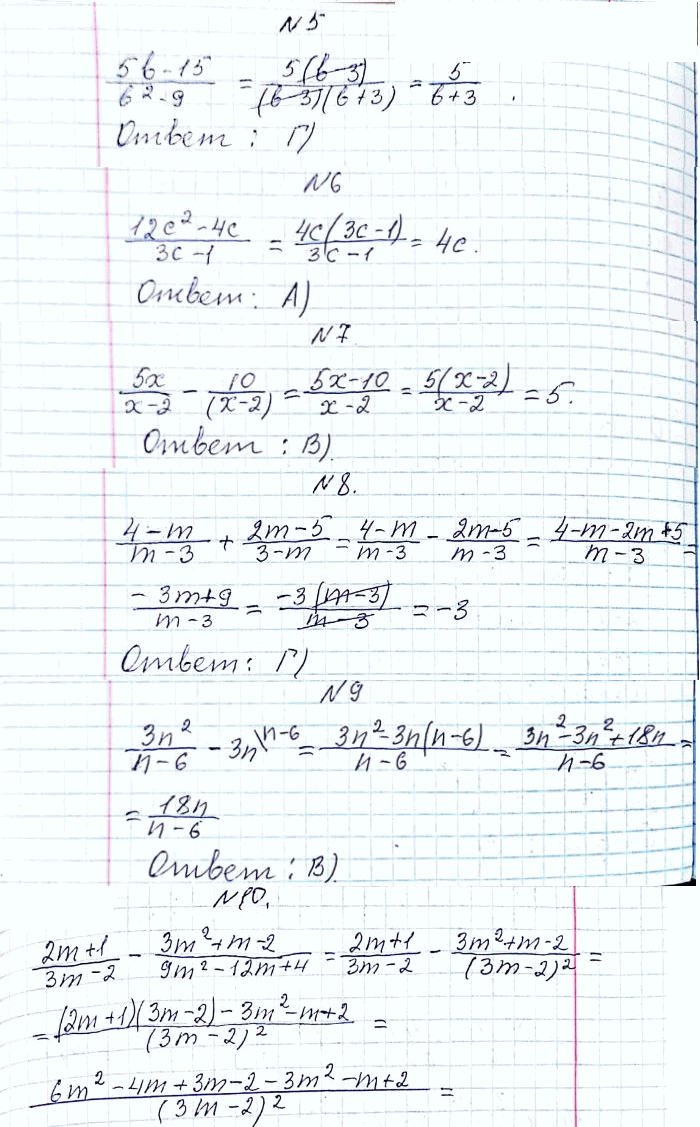 N5
(5b-15)/(b²-9) = 5(b-3)/((b-3)(b+3)) = 5/(b+3).
Ответ: Г)
N6
(12c²-4c)/(3c-1) = 4c(3c-1)/(3c-1) = 4c.
Ответ: А)
N7
5x/(x-2) - 10/(x-2) = (5x-10)/(x-2) = 5(x-2)/(x-2) = 5.
Ответ: В)
N8.
(4-m)/(m-3) + (2m-5)/(3-m) = (4-m)/(m-3) - (2m-5)/(m-3) = (4-m-2m+5)/(m-3) =
(-3m+9)/(m-3) = -3(m-3)/(m-3) = -3
Ответ: Г)
N9
3n²/(n-6) - 3n\n-6 = (3n²-3n(n-6))/(n-6) = (3n²-3n²+18n)/(n-6) =
= 18n/(n-6)
Ответ: В)
N10.
(2m+1)/(3m-2) - (3m²+m-2)/(9m²-12m+4) = (2m+1)/(3m-2) - (3m²+m-2)/(3m-2)² =
= ((2m+1)(3m-2)-3m²-m+2)/(3m-2)² =
(6m²-4m+3m-2-3m²-m+2)/(3m-2)² =